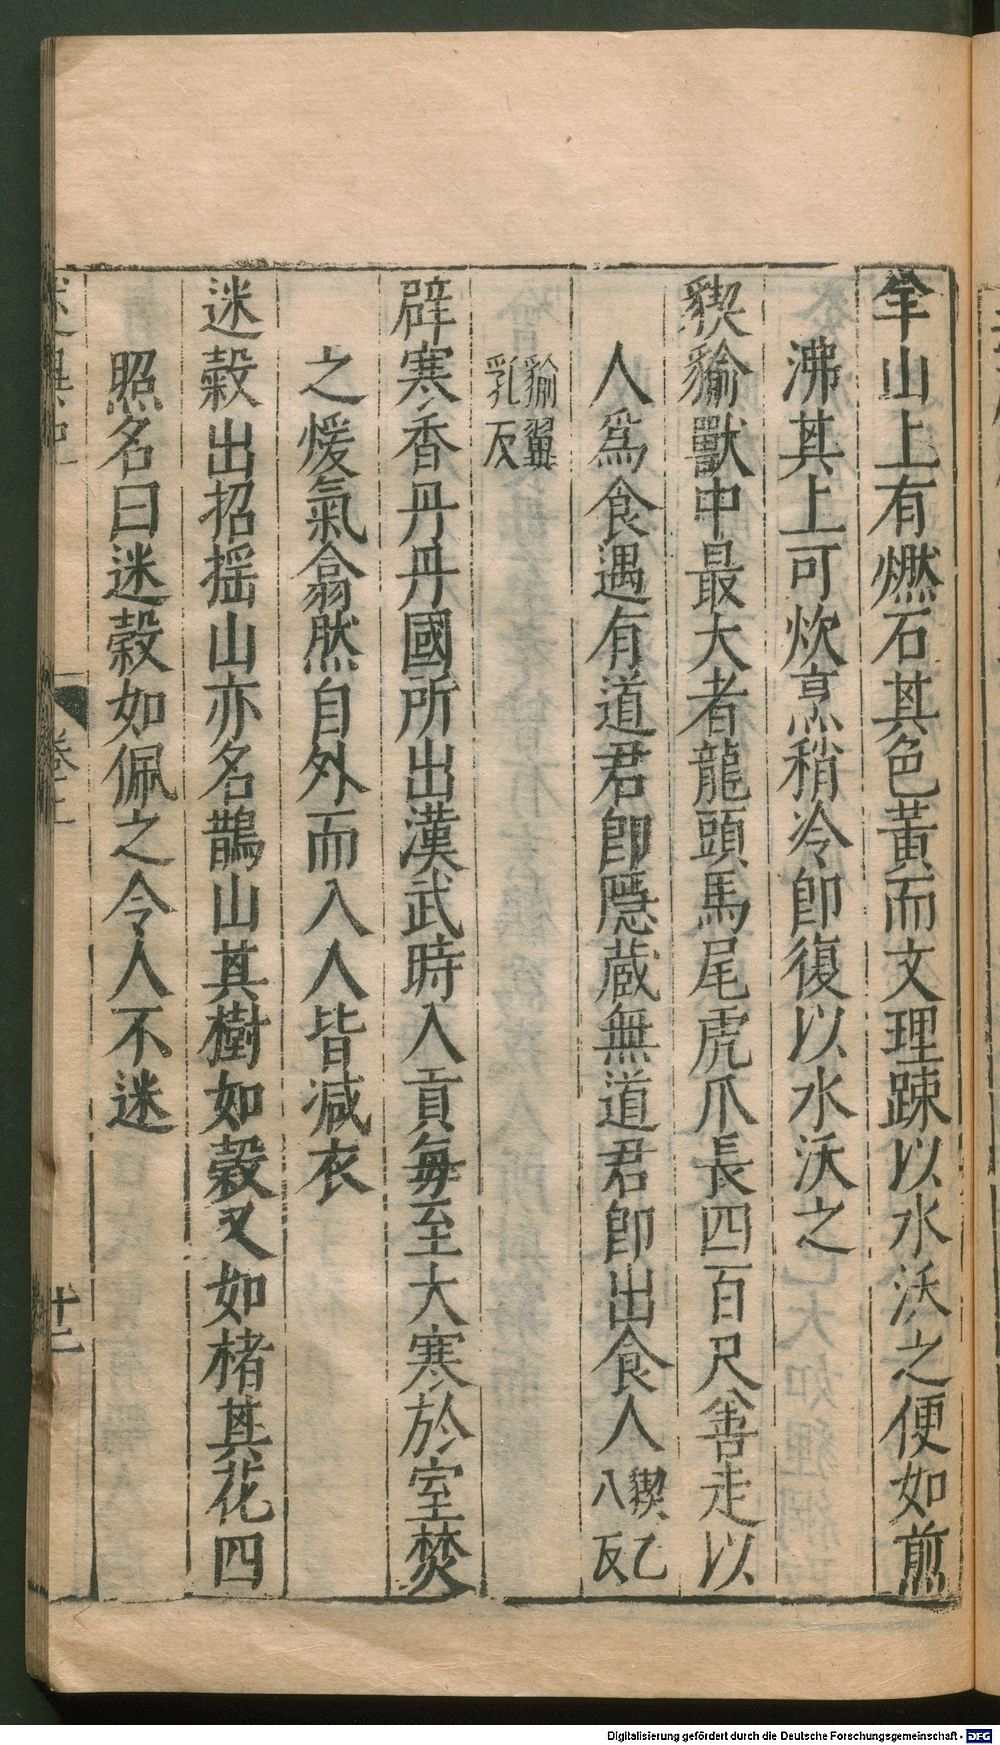 羊山上有燃石其色黃而文理踈以水沃之便如煎
沸其上可炊烹稍冷卽復以水沃之
貏貐獸中最大者龍頭馬尾虎爪長四百尺善走以
人爲食遇有道君卽隱藏無道君卽出食人
猰乙
八反
貐翼
乳反
辟寒香丹丹國所出漢武時入貢每至大寒於室焚
之煖氣翕然自外而入人皆減衣
迷榖出招揺山亦名鵲山其樹如榖又如楮其花四
照名曰迷榖如佩之令人不迷
述異記
卷上
十二
Digitalisierung gefördert durch die Deutsche Forschungsgemeinschaft - DFG